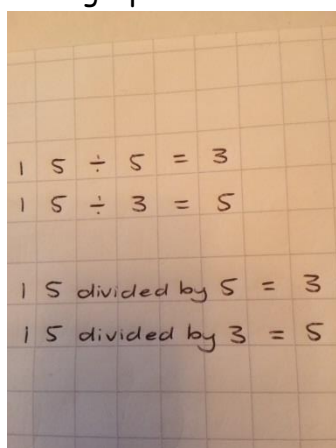 15 ÷ 5 = 3
15 ÷ 3 = 5
15 divided by 5 = 3
15 divided by 3 = 5